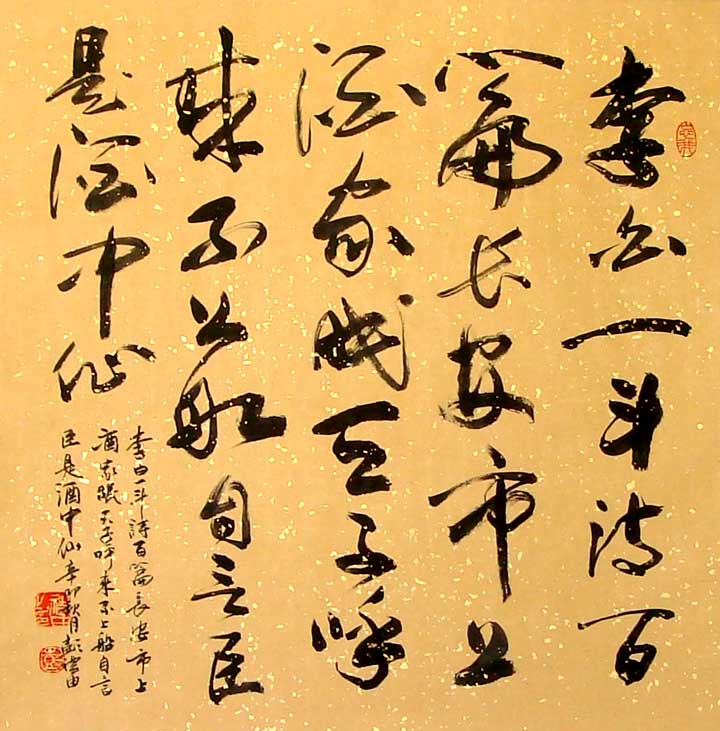 李白一斗诗百
篇长安市上
酒家眠天子呼
来不上船自言臣
是酒中仙
李白一斗詩百篇長安市上
酒家眠天子呼来不上船自言
臣是酒中仙辛卯秋月彭